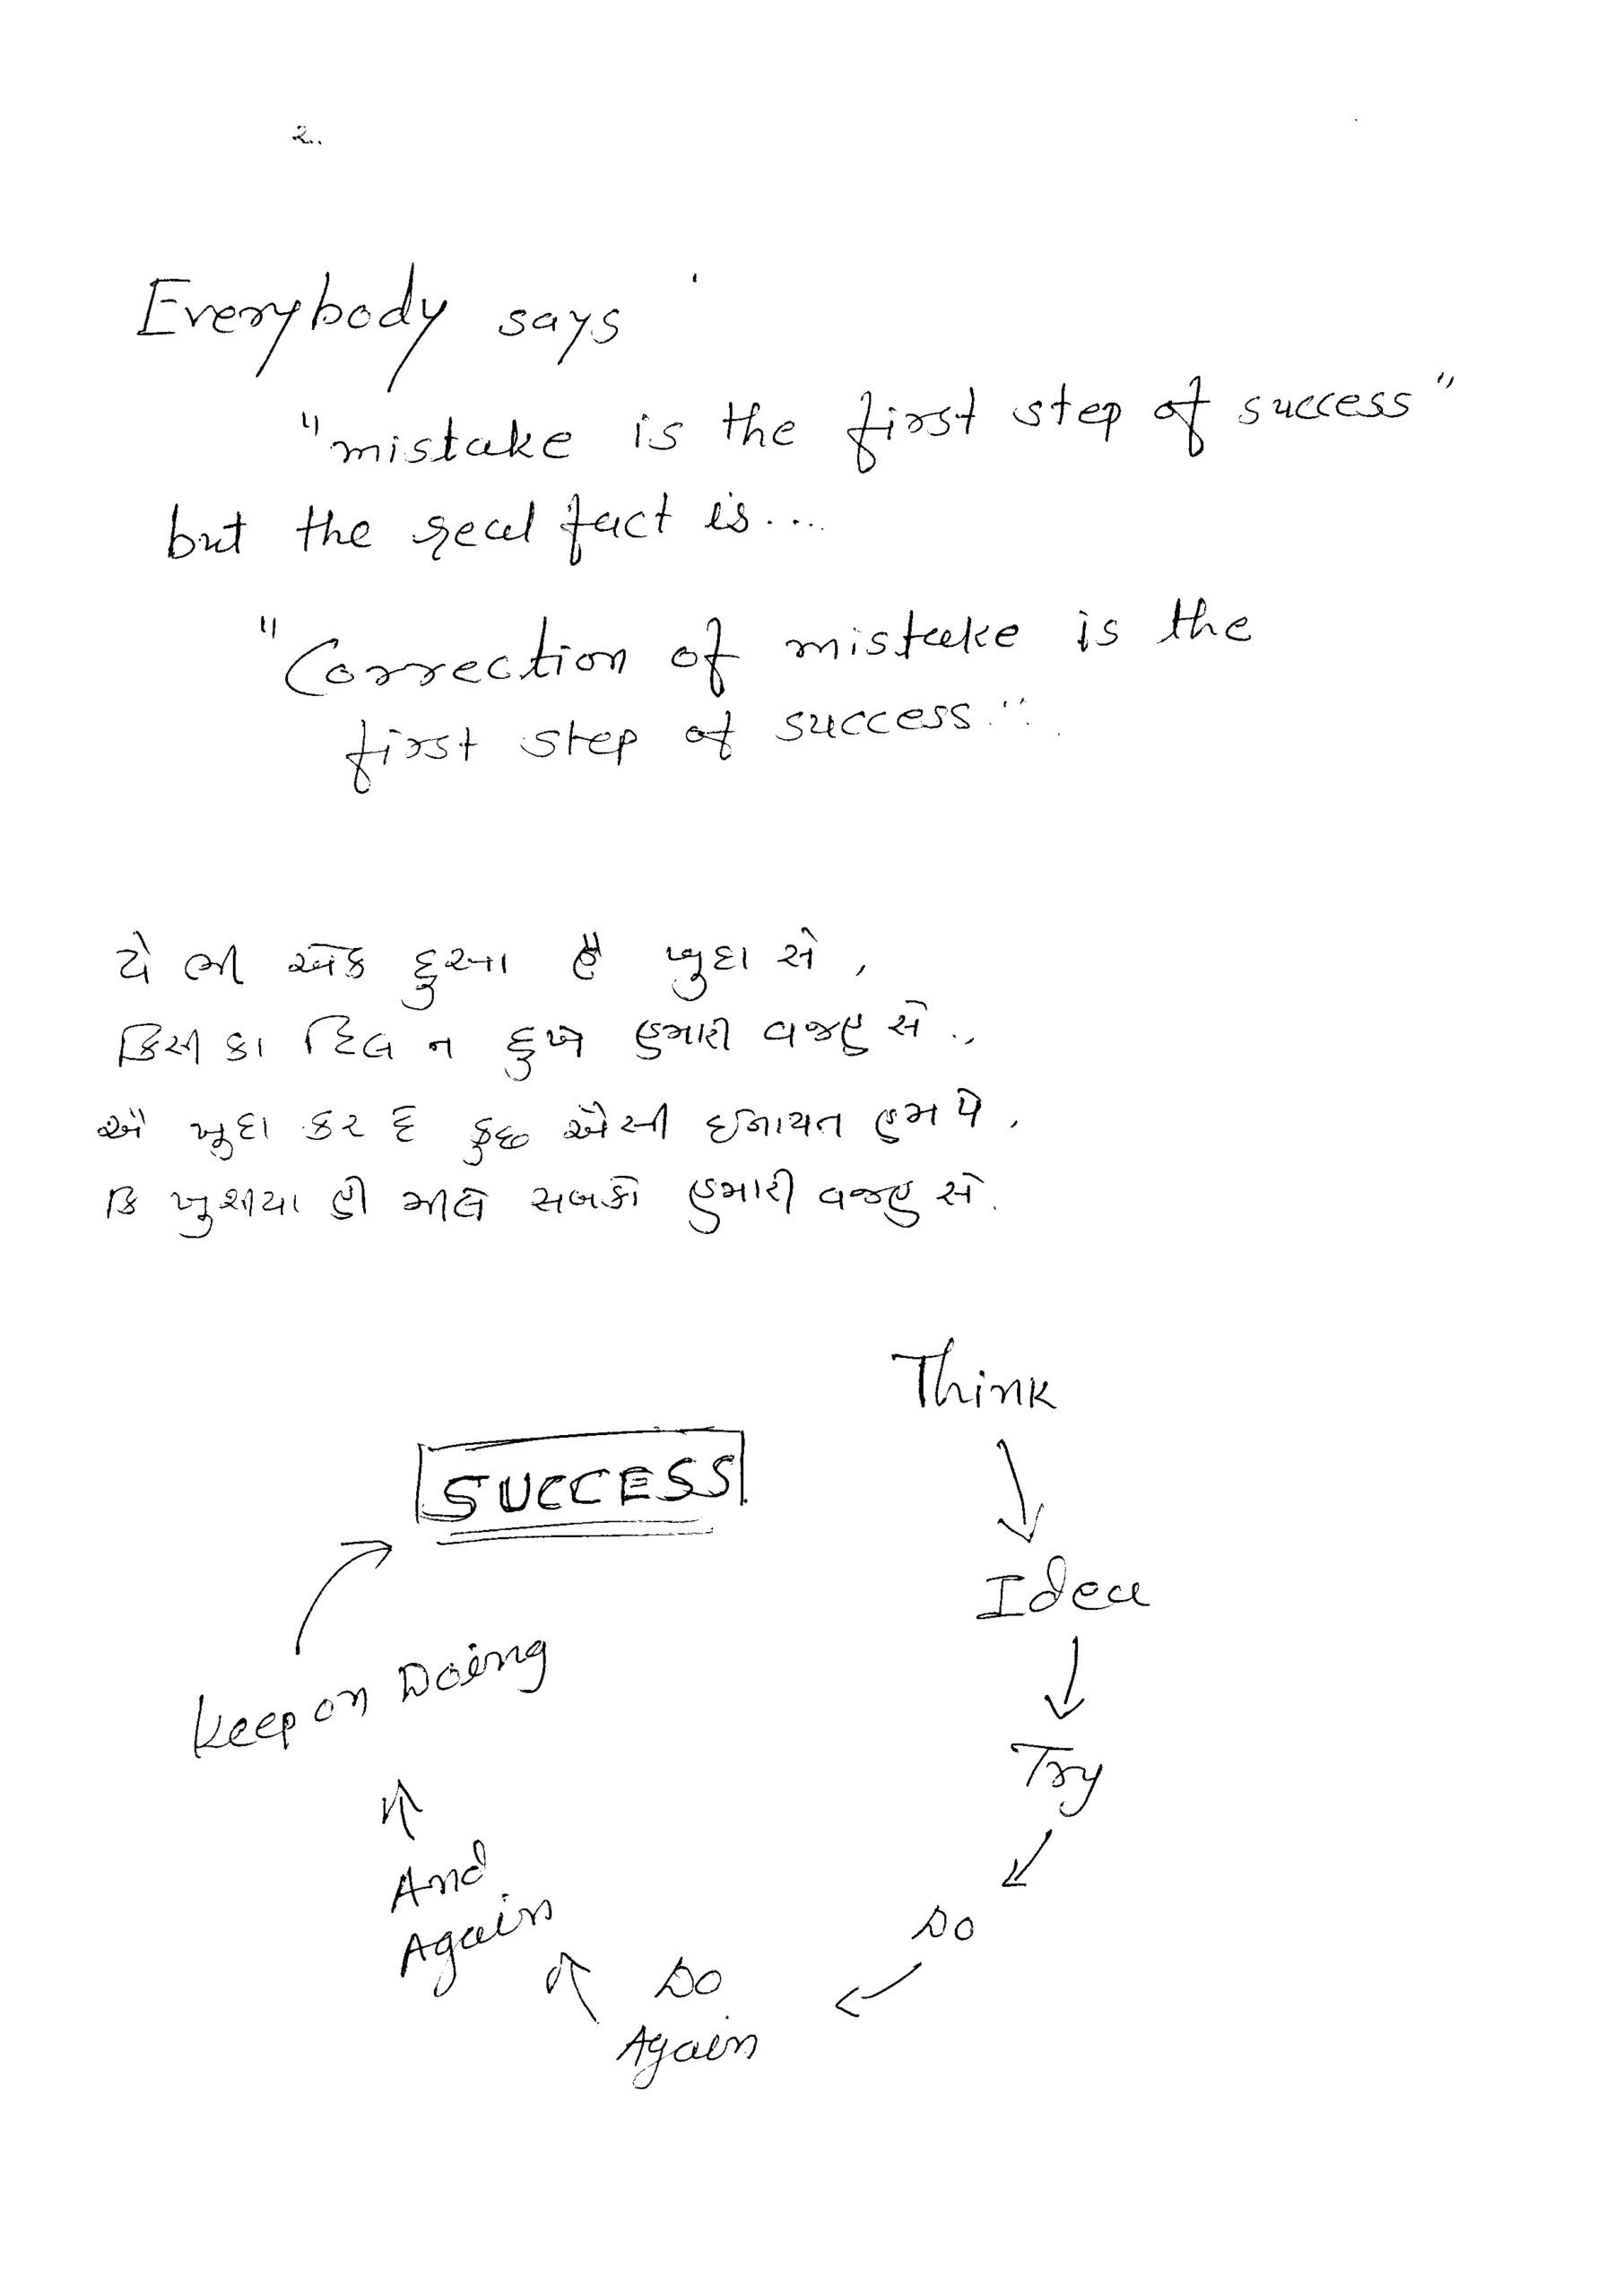 2..
Everybody says
"mistake is the first step of success"
but the real fact is....
"Correction of mistake is the
first step of success."
યે ભી એક દુઆ હૈ ખુદા સે,
કિસી કા દિલ ન દુખે હમારી વજહ સે.,
એ ખુદા કર દે કુછ ઐસી ઇનાયત હમ પે,
કિ ખુશીયા હી મીલે સબકો હમારી વજહ સે.
Think
Idea
Try
Do
Do
Again
And
Again
Keep on Doing
SUCCESS